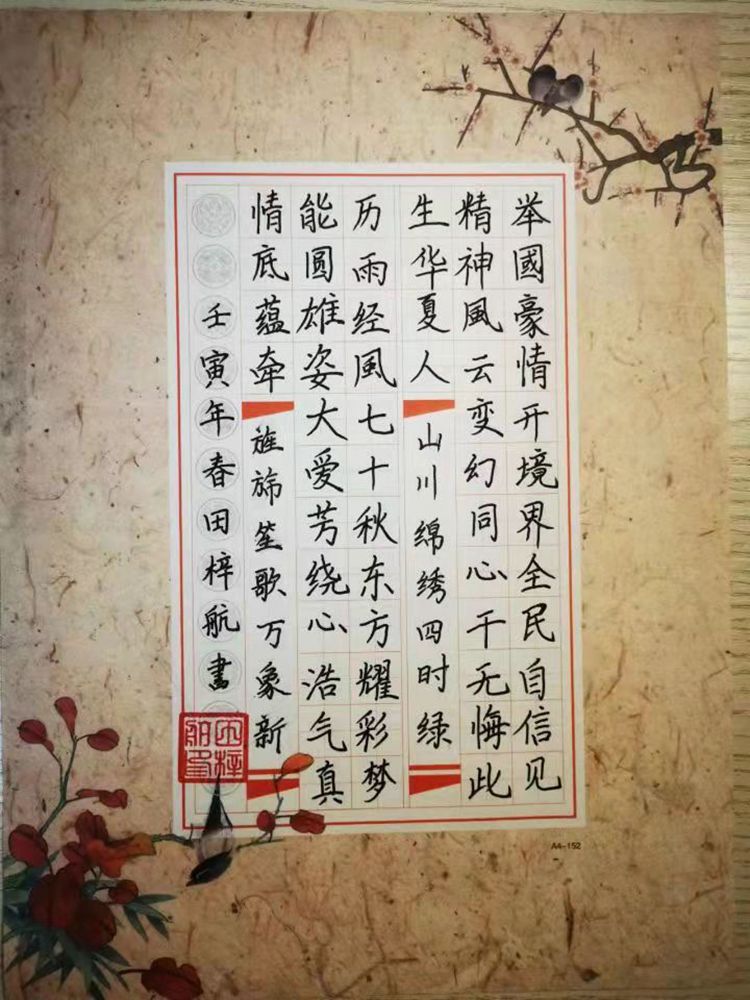 举國豪情开境界全民自信见
精神風云变幻同心干无悔此
生华夏人
山川绵绣四时绿
历雨经風七十秋东方耀彩梦
能圆雄姿大爱芳绕心浩气真
情底蕴牵
旌旆笙歌万象新
壬寅年春田梓航書
田梓航印
A4-152